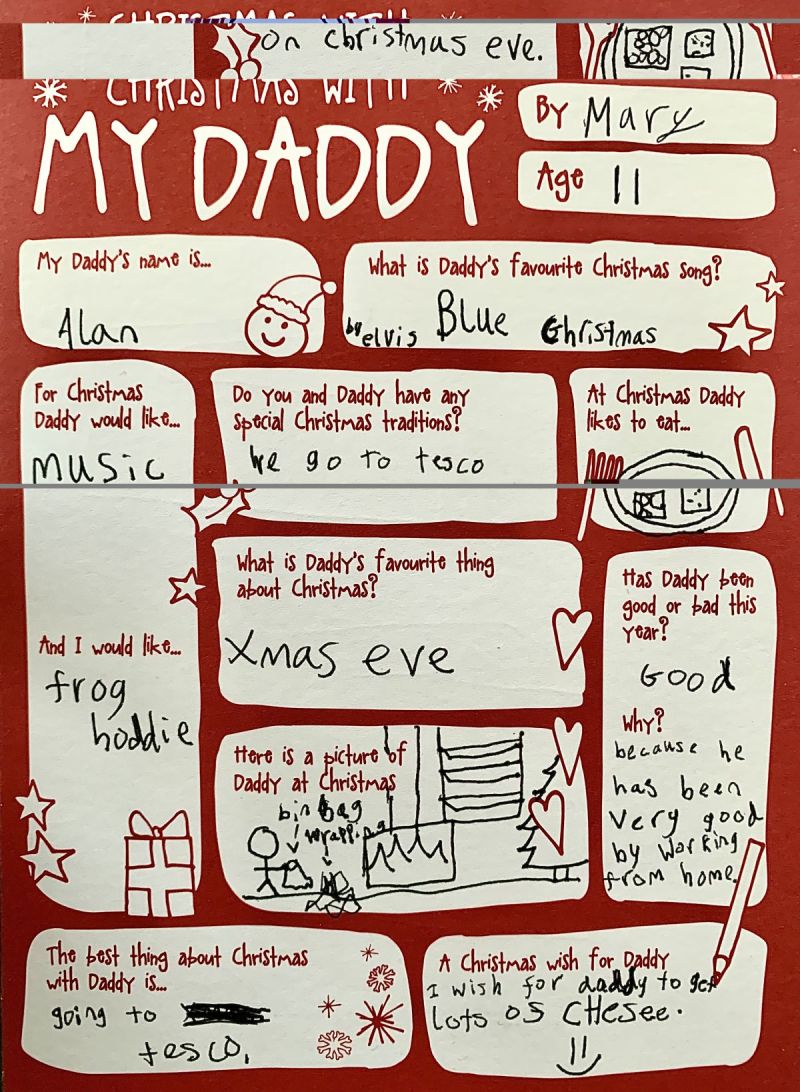 on christmas eve.
CHRISTMAS WITH
MY DADDY
By Mary
Age 11
My Daddy's name is...
Alan
What is Daddy's favourite Christmas song?
by elvis Blue Christmas
For Christmas
Daddy would like...
music
Do you and Daddy have any
special Christmas traditions?
We go to tesco
At Christmas Daddy
likes to eat...
And I would like...
frog
hoddie
What is Daddy's favourite thing
about Christmas?
Xmas eve
Has Daddy been
good or bad this
year?
Good
Why?
because he
has been
very good
by working
from home.
Here is a picture of
Daddy at Christmas
bin bag
wrapping
The best thing about Christmas
with Daddy is...
going to
tesco.
A Christmas wish for Daddy
I wish for daddy to get
lots os CHesee.